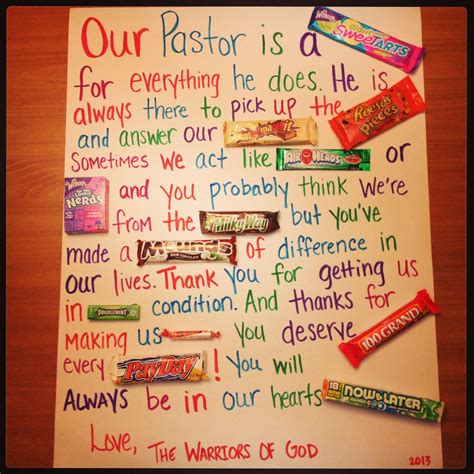 Our Pastor is a Wonka SWEETARTS
for everything he does. He is
always there to pick up the Reese's Pieces
and answer our whatchamacallit
Sometimes we act like AIRHEADS or
Wonka Nerds and you probably think We're
from the Milky Way but you've
made a Mounds of difference in
our lives. Thank you for getting us
in DOUBLEMINT condition. And thanks for
making us You deserve 100 GRAND
every PayDay! You will
ALWAYS be in our hearts NOW and LATER
Love, THE WARRIORS OF GOD
2013